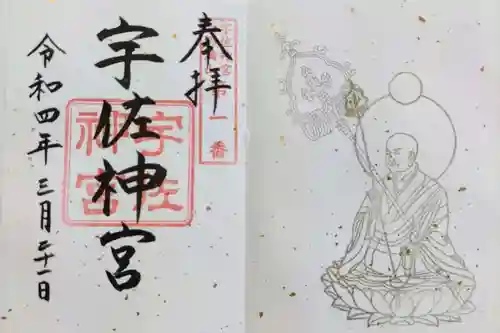 奉拝
宇佐神宮
令和四年三月二十一日
宇佐
神宮
一番